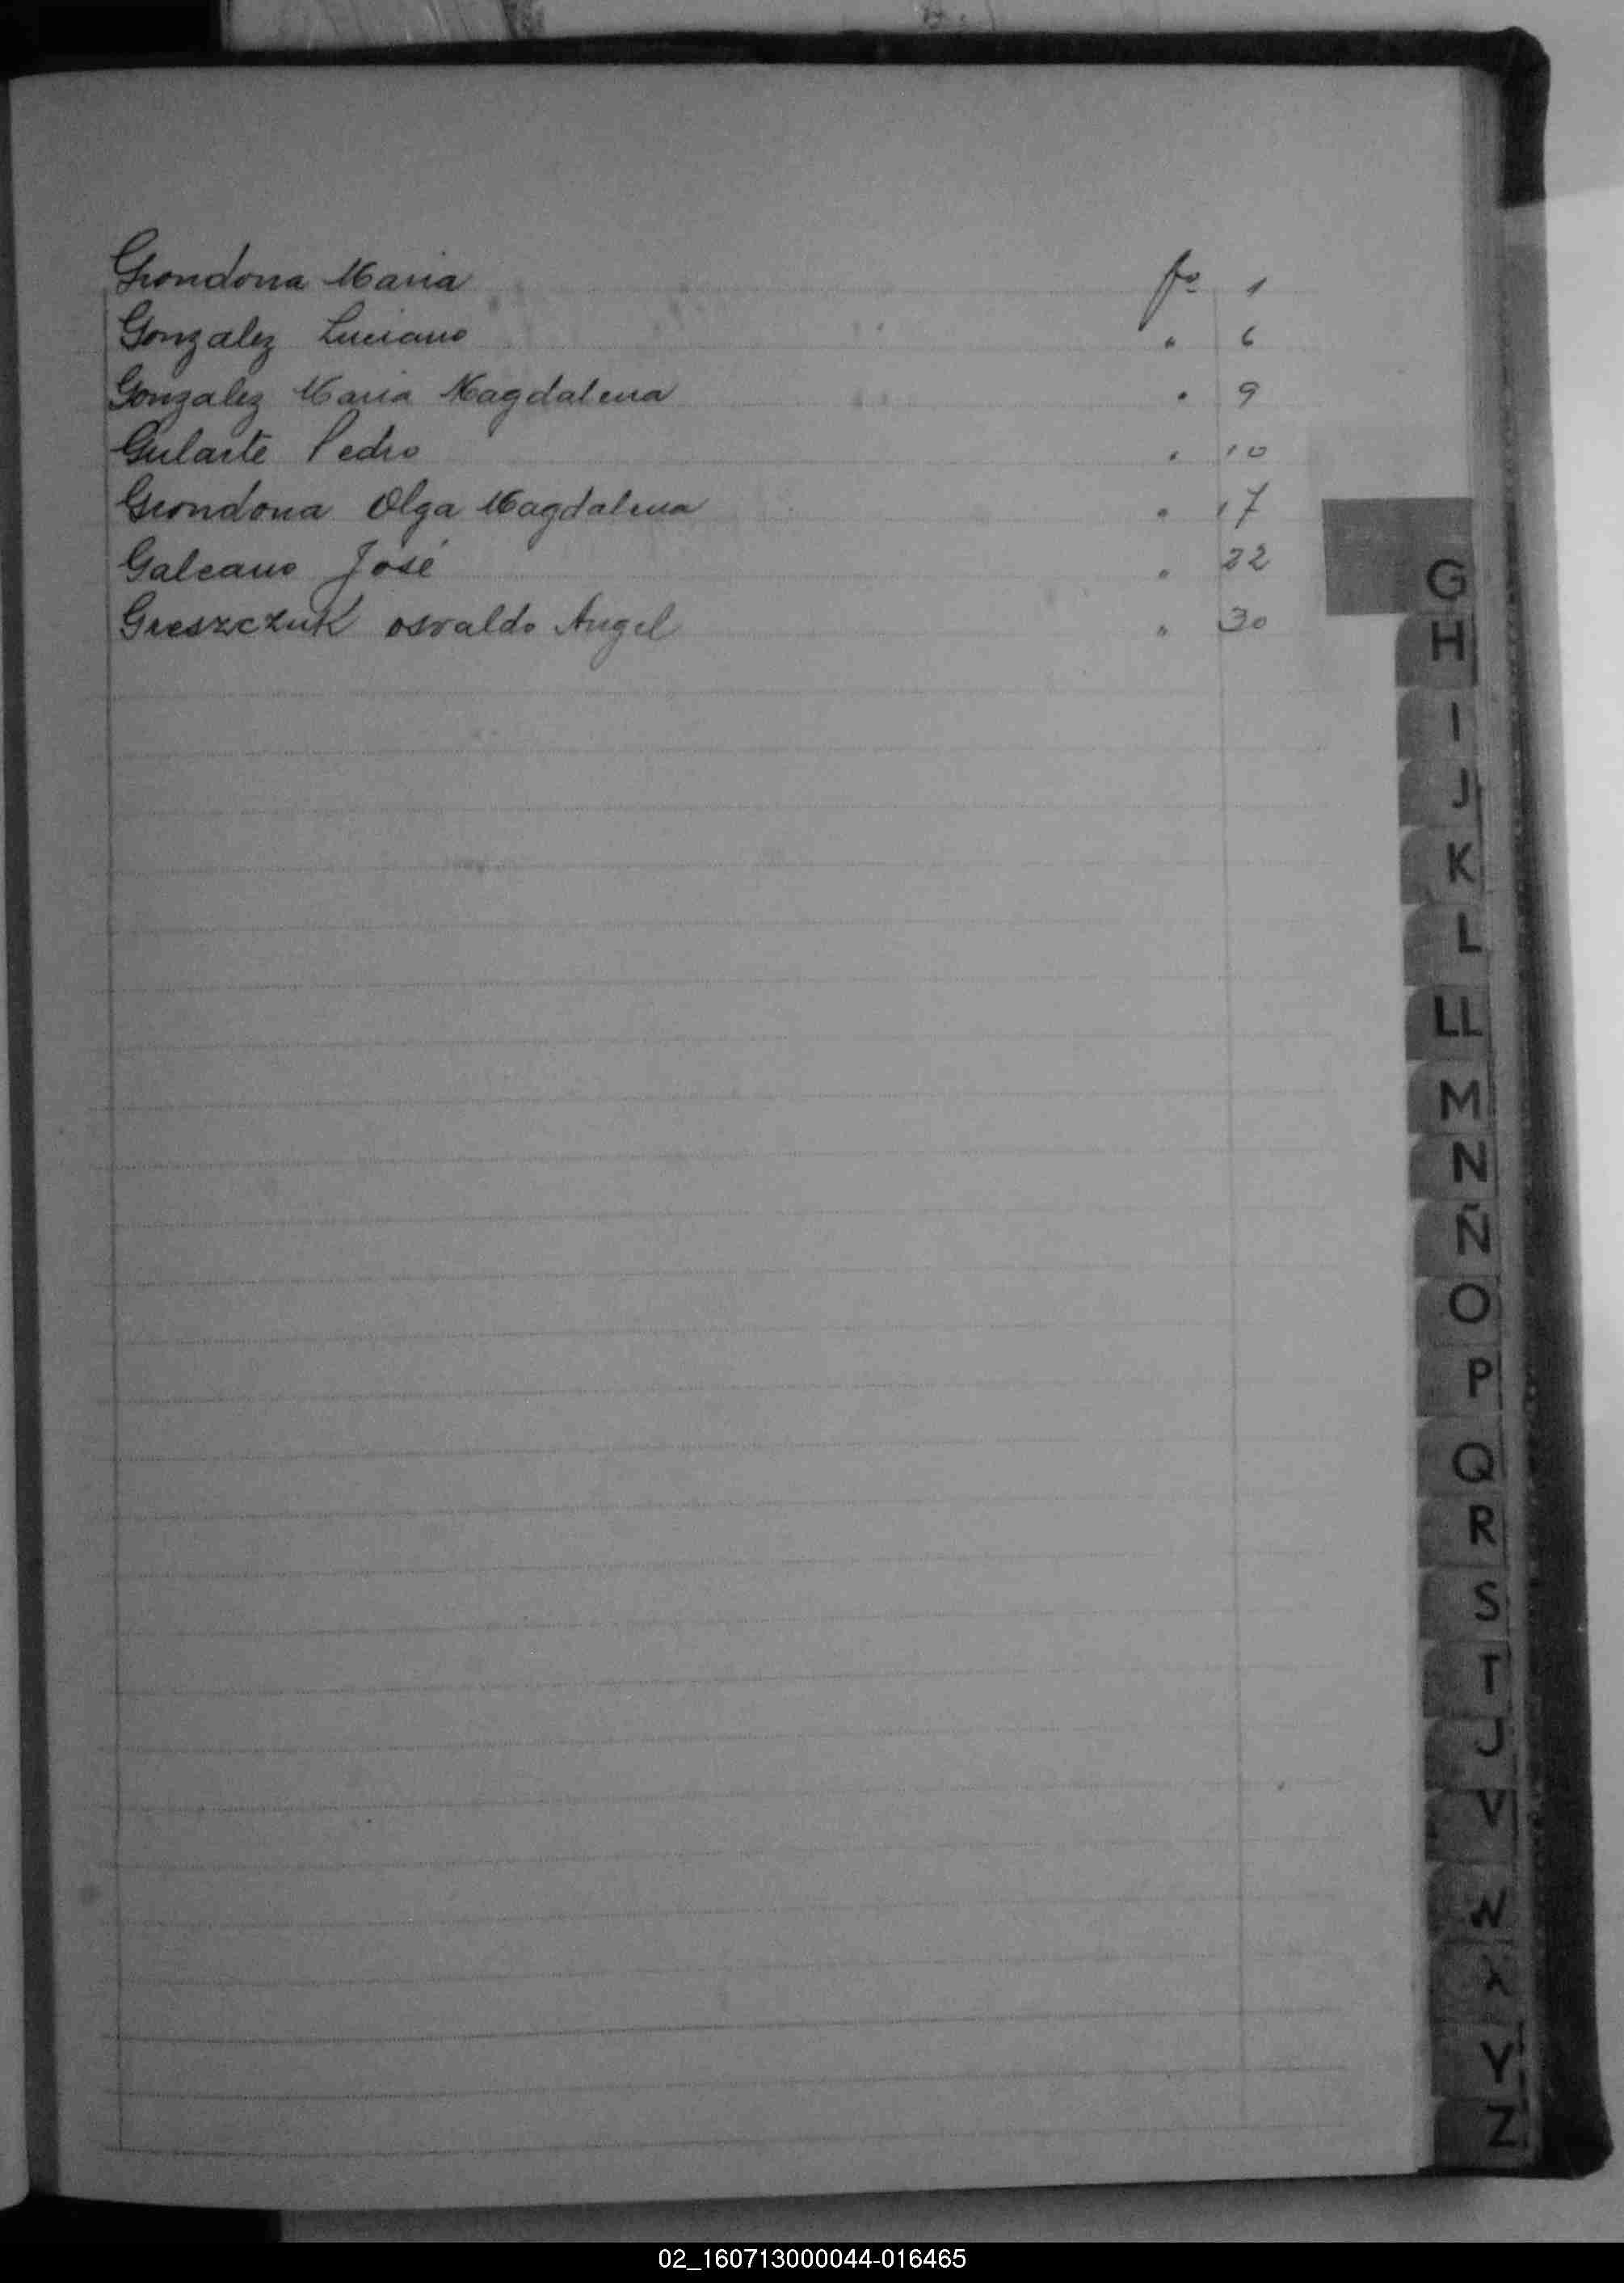 Grondona Maria fº 1
Gonzalez Luciano " 6
Gonzalez Maria Magdalena " 9
Gularte Pedro " 10
Grondona Olga Magdalena " 17
Galeano José " 22
Greszczuk Osvaldo Angel " 30
G
H
I
J
K
L
LL
M
N
Ñ
O
P
Q
R
S
T
U
V
W
X
Y
Z
02_160713000044-016465